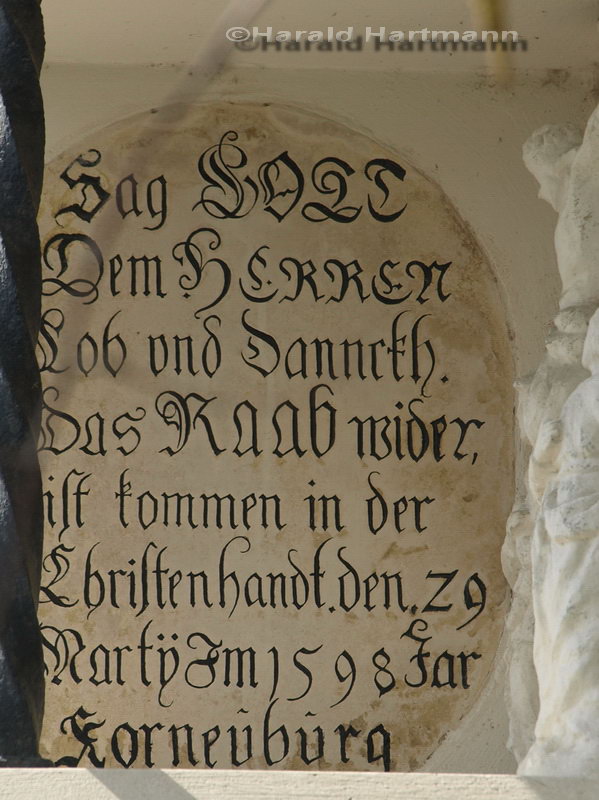 ©Harald Hartmann
Sag GOTT
Dem HERREN
Lob vnd Dannckh.
Das RAAB wider,
ist kommen in der
Christenhandt.den.29
Martÿ Im 1598 Jar
Korneüburg